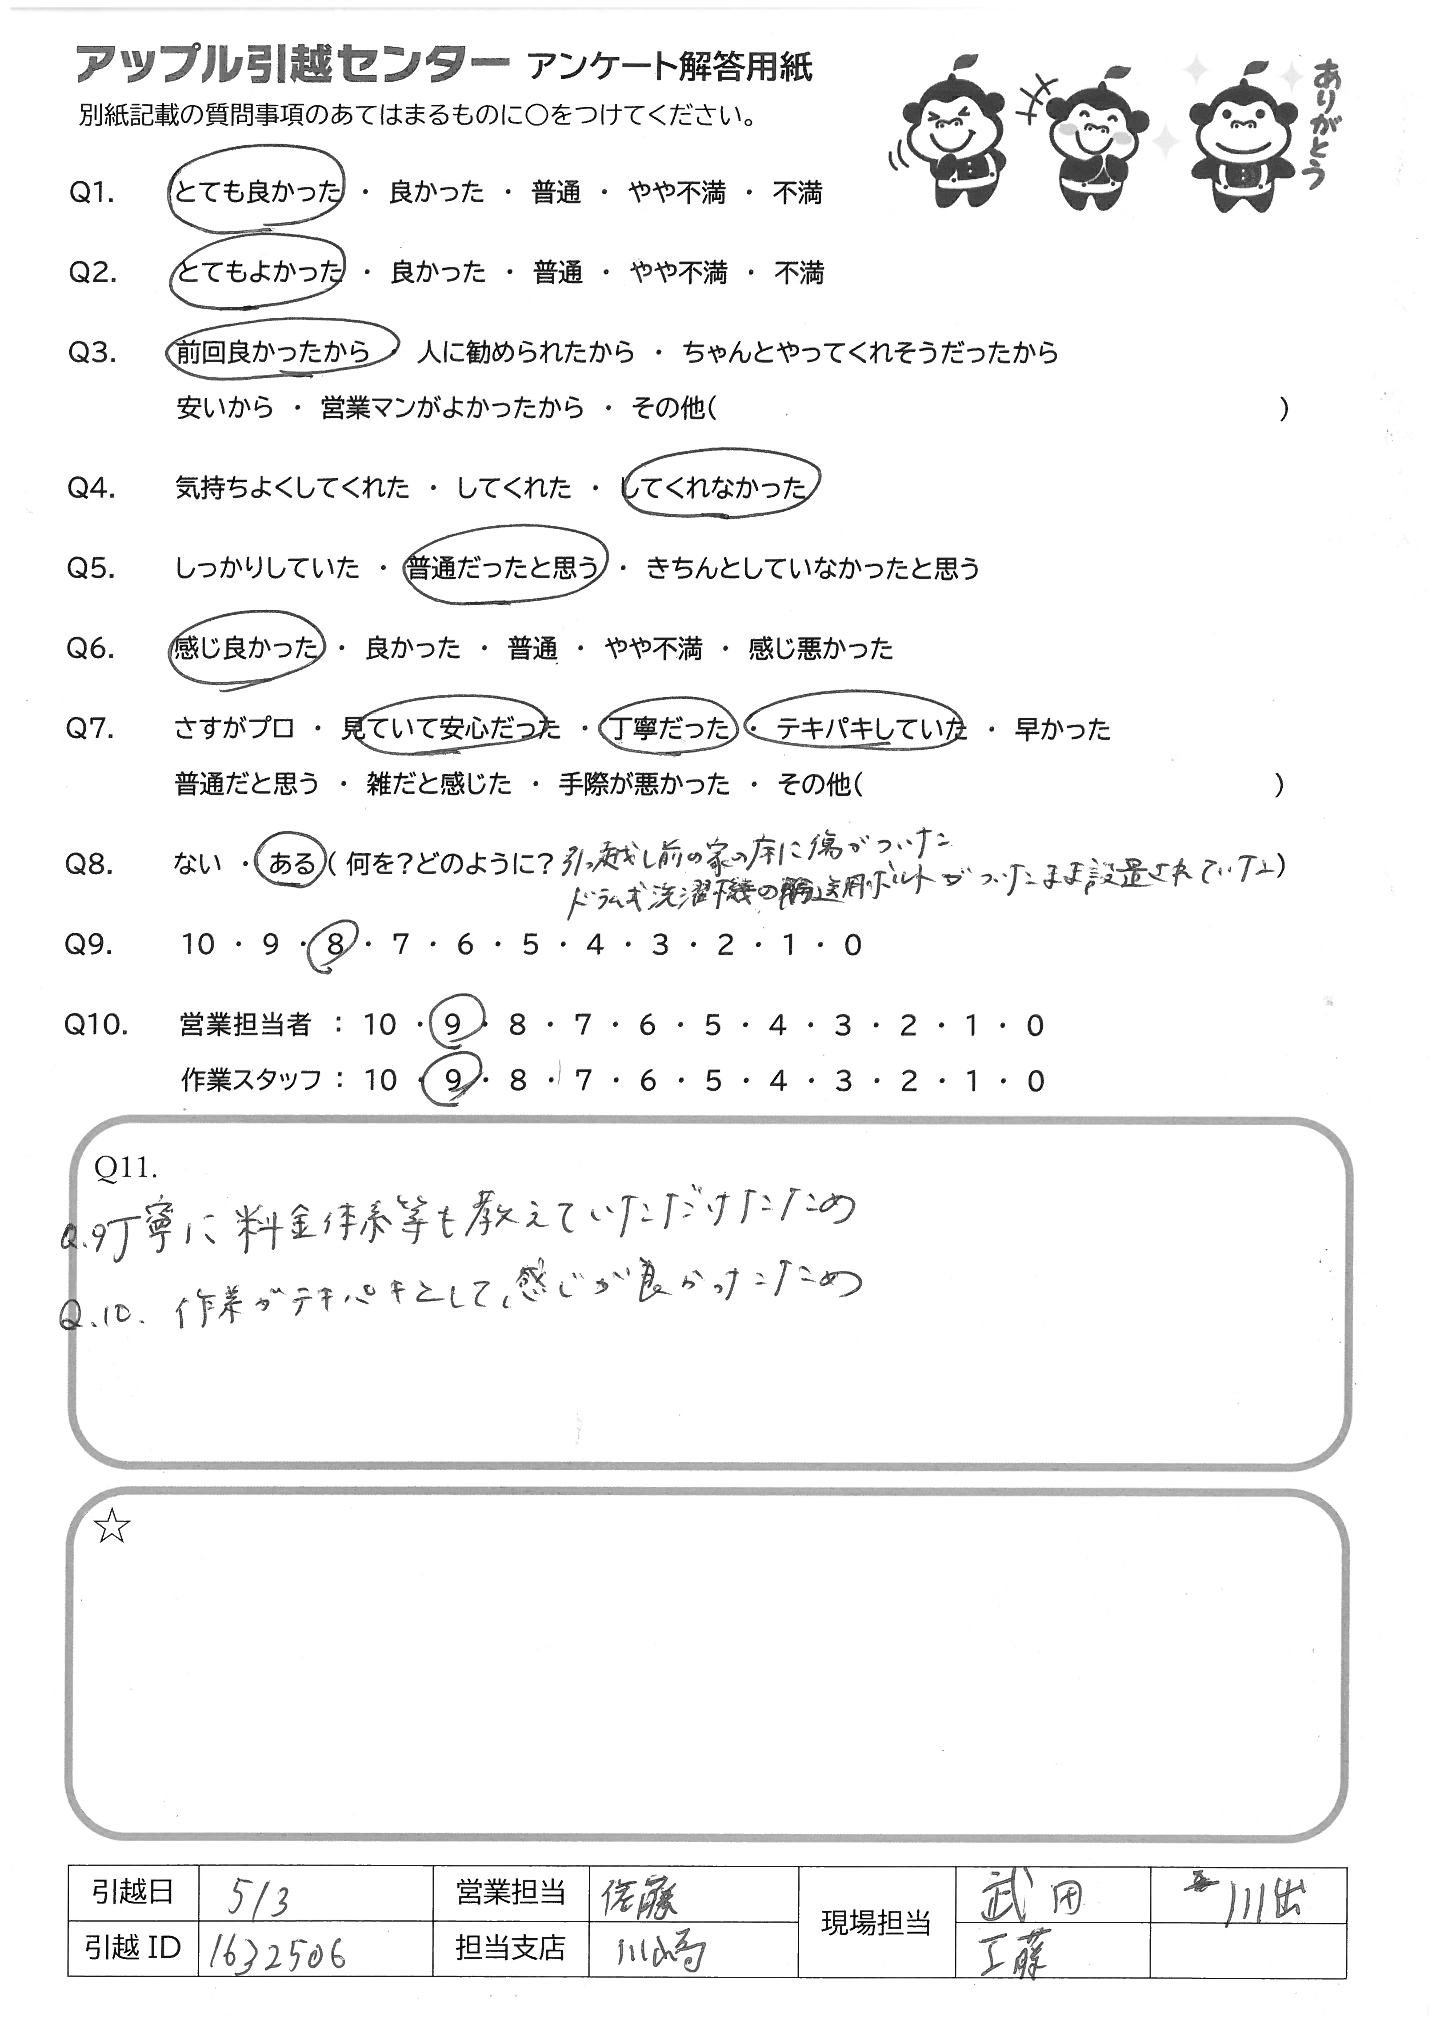 アップル引越センター アンケート解答用紙
別紙記載の質問事項のあてはまるものに○をつけてください。
ありがとう
Q1. とても良かった ・ 良かった ・ 普通 ・ やや不満 ・ 不満
Q2. とてもよかった ・ 良かった ・ 普通 ・ やや不満 ・ 不満
Q3. 前回良かったから ・ 人に勧められたから ・ ちゃんとやってくれそうだったから
安いから ・ 営業マンがよかったから ・ その他( )
Q4. 気持ちよくしてくれた ・ してくれた ・ してくれなかった
Q5. しっかりしていた ・ 普通だったと思う ・ きちんとしていなかったと思う
Q6. 感じ良かった ・ 良かった ・ 普通 ・ やや不満 ・ 感じ悪かった
Q7. さすがプロ ・ 見ていて安心だった ・ 丁寧だった ・ テキパキしていた ・ 早かった
普通だと思う ・ 雑だと感じた ・ 手際が悪かった ・ その他( )
Q8. ない ・ ある ( 何を?どのように? 引っ越し前の家の床に傷がついた
ドラム式洗濯機の輸送用ボルトがついたまま設置されていた)
Q9. 10 ・ 9 ・ 8 ・ 7 ・ 6 ・ 5 ・ 4 ・ 3 ・ 2 ・ 1 ・ 0
Q10. 営業担当者 : 10 ・ 9 ・ 8 ・ 7 ・ 6 ・ 5 ・ 4 ・ 3 ・ 2 ・ 1 ・ 0
作業スタッフ : 10 ・ 9 ・ 8 ・ 7 ・ 6 ・ 5 ・ 4 ・ 3 ・ 2 ・ 1 ・ 0
Q11.
Q.9丁寧に料金体系等も教えていただけたため
Q.10. 作業がテキパキとして、感じが良かったため
☆
引越日 5/3 営業担当 佐藤 現場担当 武田 川出
引越ID 1632506 担当支店 川崎 工藤